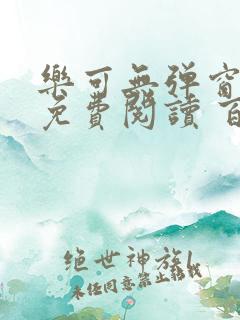 樂可無弹窗
免費閱讀 百
绝世神族l
未经同意禁止转载